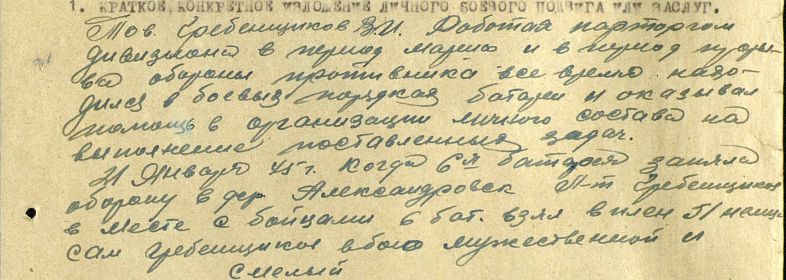 1. КРАТКОЕ, КОНКРЕТНОЕ ИЗЛОЖЕНИЕ ЛИЧНОГО БОЕВОГО ПОДВИГА ИЛИ ЗАСЛУГ.
Тов. Гребенщиков В.И. Работая парторгом
дивизиона в период марша и в период проры-
ва обороны противника все время нахо-
дился в боевых порядках батареи и оказывал
помощь в организации личного состава на
выполнение поставленных задач.
21 Января 45 г. когда 6я батарея заняла
оборону в дер Александровск Л-т Гребенщиков
в месте с бойцами 6 бат. взял в плен немца
сам Гребенщиков в бою мужественной и
смелый